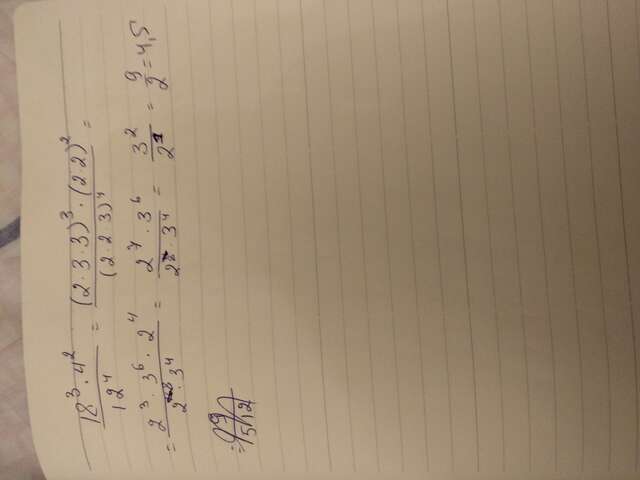 18³ · 4² / 12⁴ = (2 · 3 · 3)³ · (2 · 2)² / (2 · 2 · 3)⁴ =
= 2³ · 3⁶ · 2⁴ / 2⁸ · 3⁴ = 2⁷ · 3⁶ / 2⁸ · 3⁴ = 3² / 2¹ = 9 / 2 = 4,5